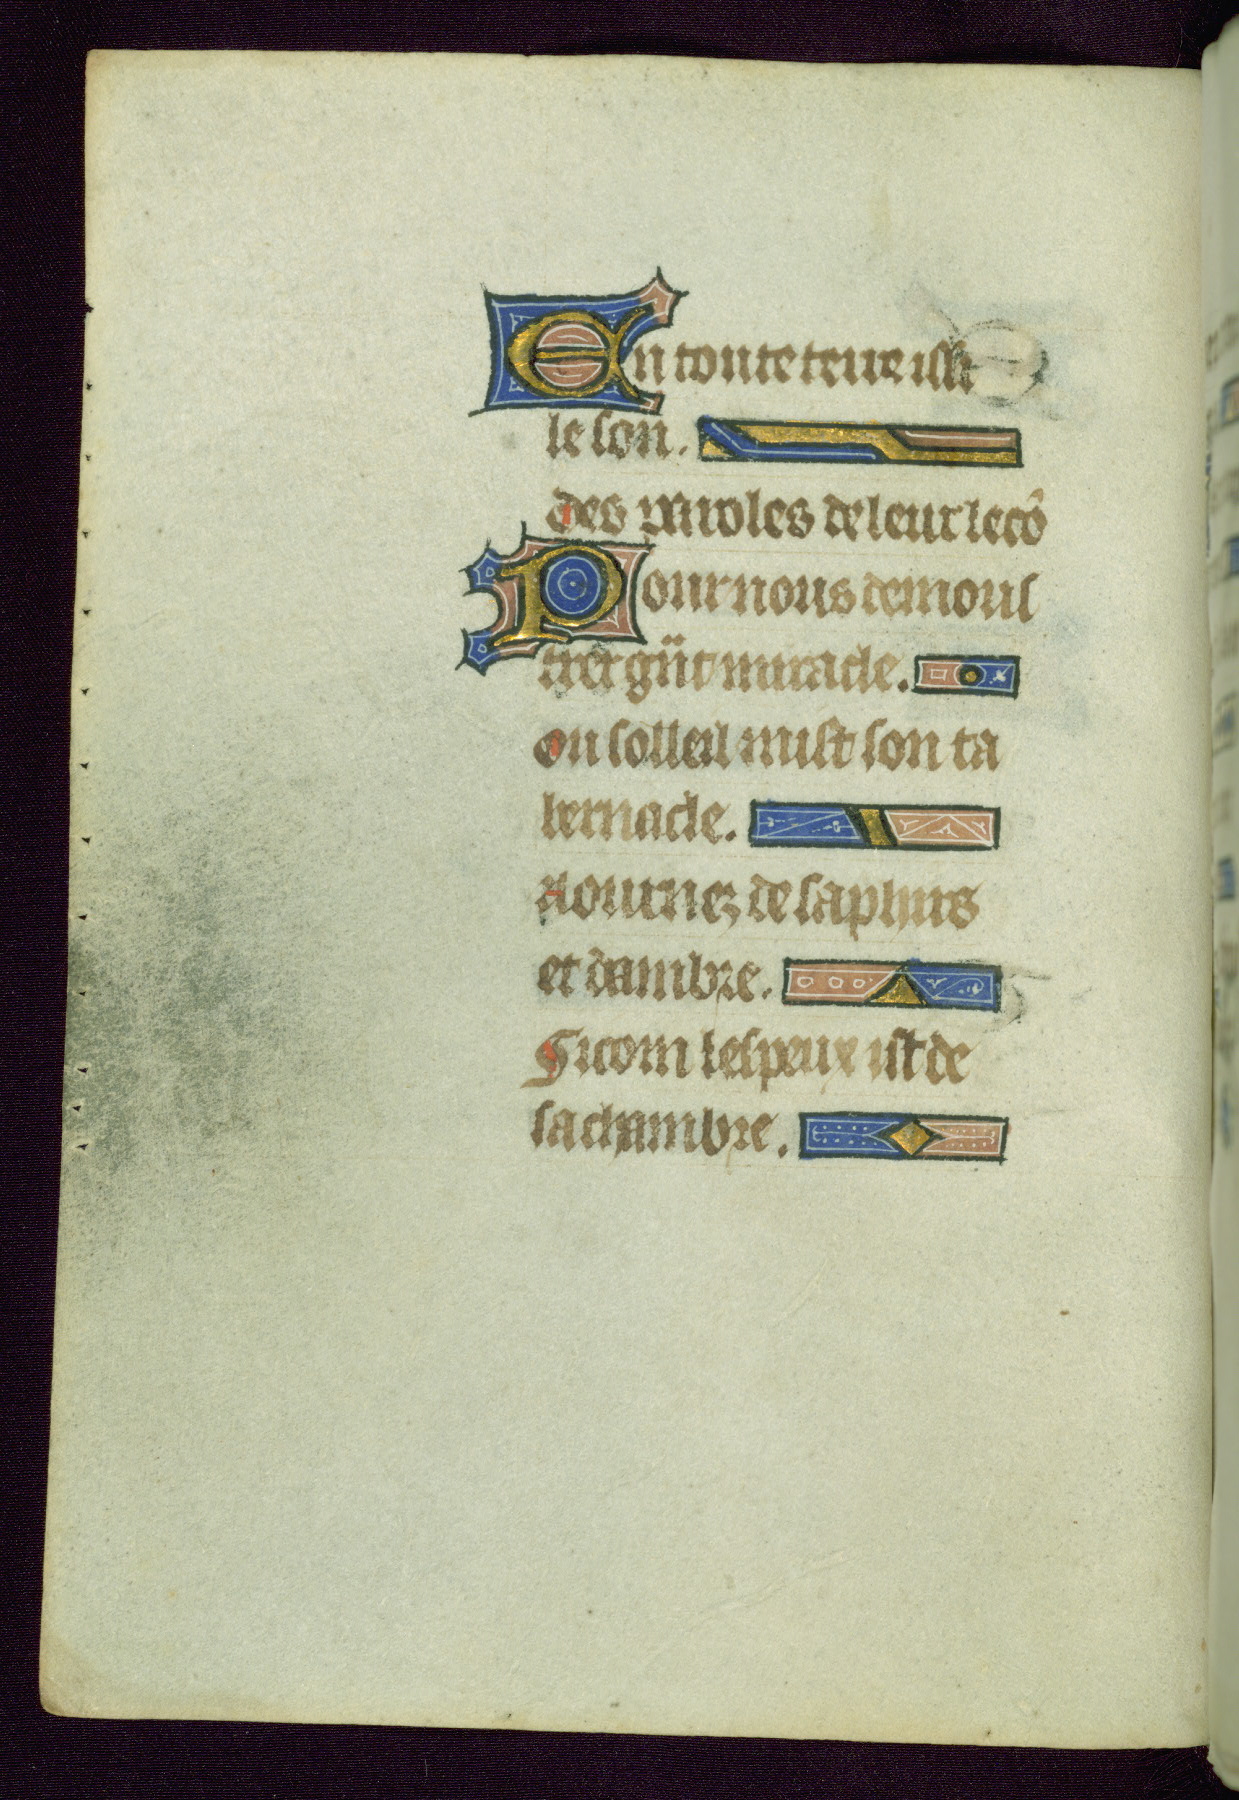 En toute terre issi
le son.
des paroles de leur lecõ
Pour nous demous
trer g̃nt miracle.
ou solleil mist son ta
bernacle.
Aournez de saphirs
et dambre.
Si com lespeux ist de
sa chambre.